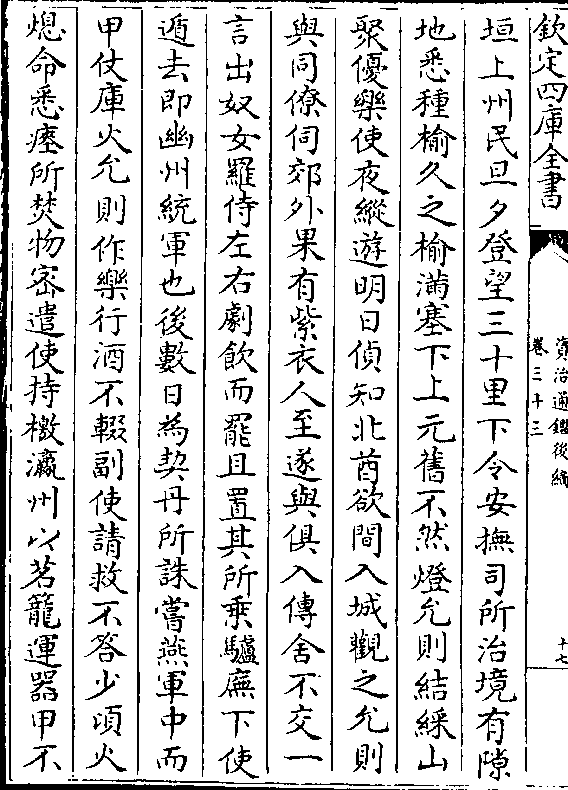 欽定四庫全書
資治通鑑後編
卷三十三
十七
垣上州民旦夕登望三十里下令安撫司所治境有隙
地悉種榆久之榆滿塞下上元舊不然燈允則結綵山
聚優樂使夜縱遊明日偵知北酋欲間入城觀之允則
與同僚伺郊外果有紫衣人至遂與俱入傳舍不交一
言出奴女羅侍左右劇飲而罷且置其所乗驢廡下使
遁去即幽州統軍也後數日為契丹所誅嘗燕軍中而
甲仗庫火允則作樂行酒不輟副使請救不答少頃火
熄命悉瘞所焚物密遣使持檄瀛州以茗籠運器甲不